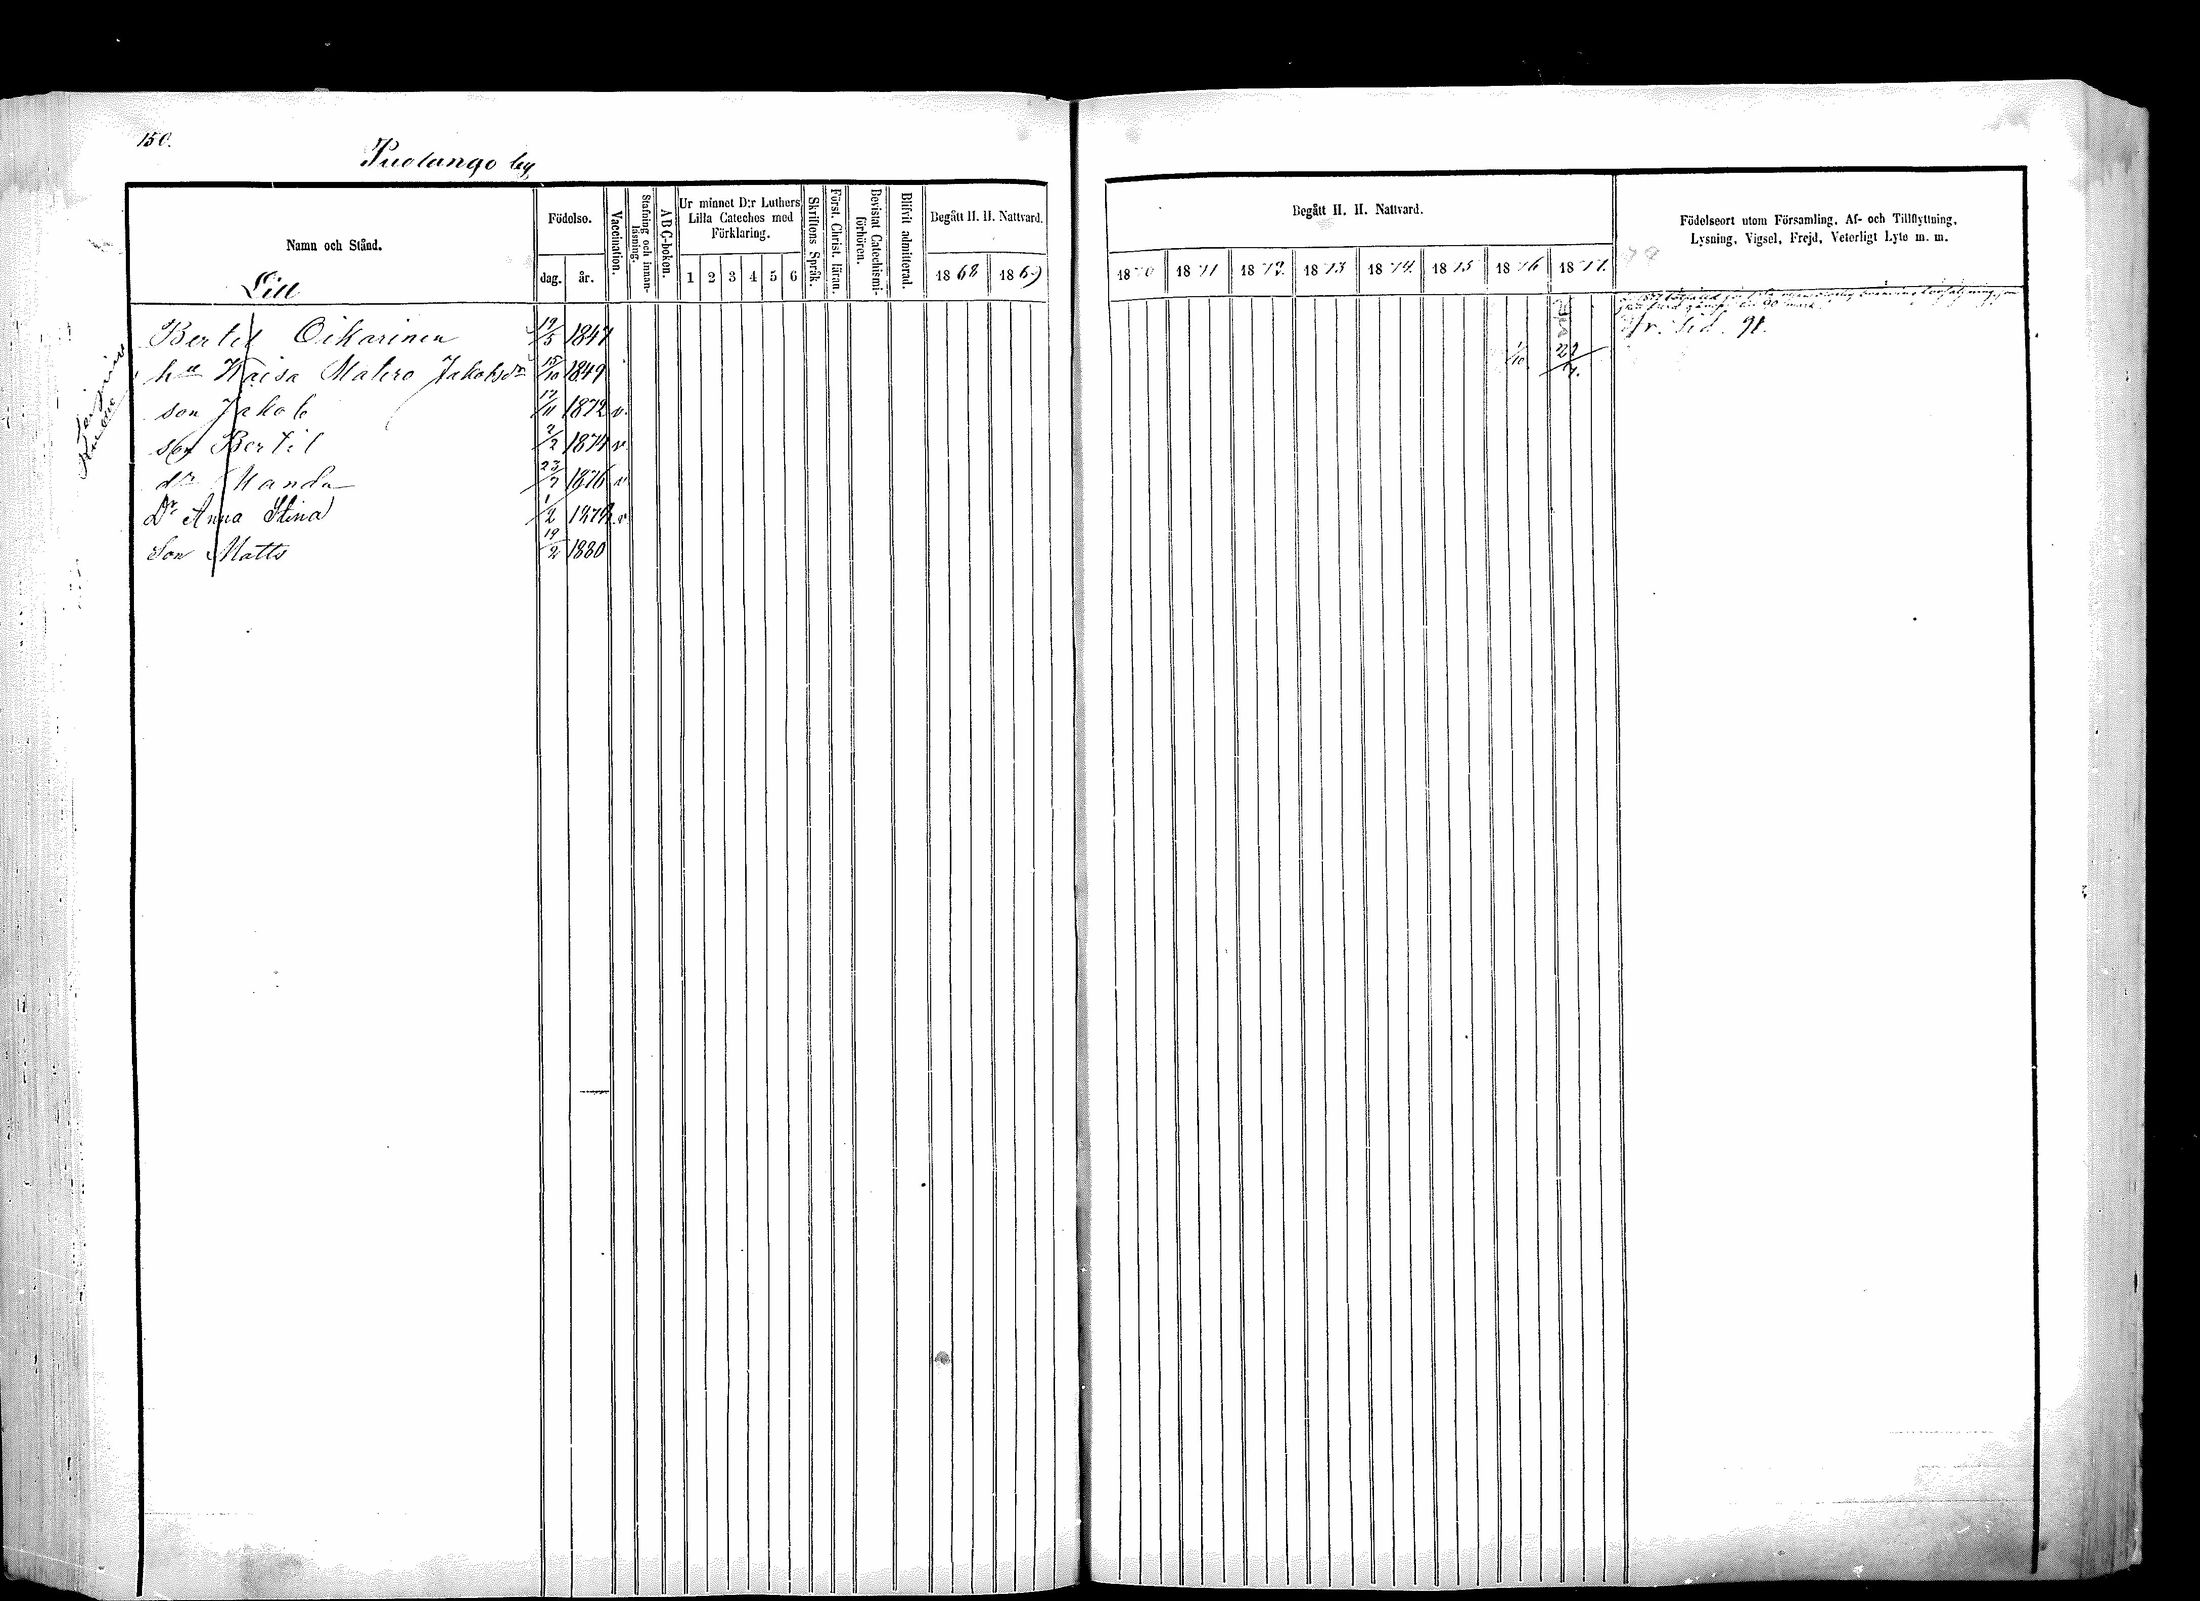 150.
Puolango by
Namn och Stånd.
Födelse.
dag. år.
Vaccination.
Stafning och innanläsning.
ABC-boken.
Ur minnet D:r Luthers Lilla Cateches med Förklaring.
1 2 3 4 5 6
Skriftens Språk.
Först. Christ. läran.
Bevistat Catechismiförhören.
Blifvit admitterad.
Begått H. H. Nattvard.
1868 1869
Begått H. H. Nattvard.
1870 1871 1872 1873 1874 1875 1876 1877.
Födelseort utom Församling, Af- och Tillflyttning,
Lysning, Vigsel, Frejd, Veterligt Lyte m. m.
Lill
Bertil Oikarinen 19/5 1847 fr. sid. 91.
hu Kaisa Malero Jakobsdr 15/10 1849 1/10
son Jakob 17/11 1872 v.
son Bertil 2/2 1874 v
dr Manda 23/7 1876 v
Dr Anna Stina 1/2 1879 v
Son Matts 19/2 1880